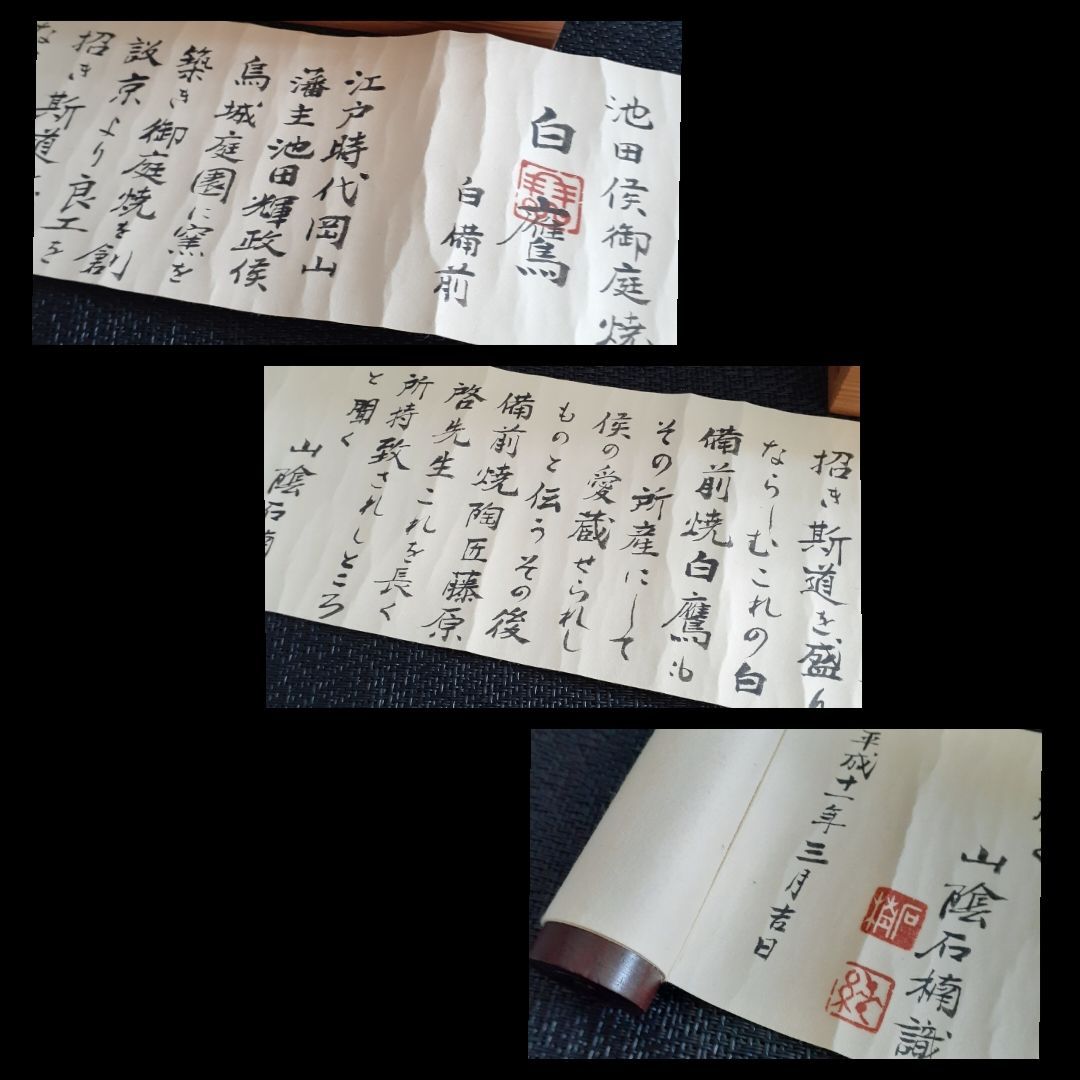 池田侯御庭焼
白鷹
白備前
江戸時代岡山
藩主池田輝政侯
烏城庭園に窯を
築き御庭焼を創
設京より良工を
招き斯道を
招き斯道を盛り
ならしむこれの白
備前焼白鷹も
その所産にして
侯の愛蔵せられし
ものと伝うその後
備前焼陶匠藤原
啓先生これを長く
所持致されしところ
と聞く
山陰石
山陰石楠識
石楠
平成十一年三月吉日